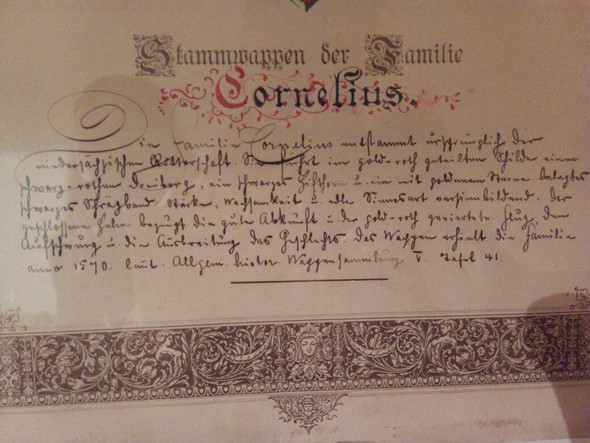 Stammwappen der Familie
Cornelius.
Die Familie Cornelius entstammt ursprünglich der
niedersächsischen Ritterschaft. Sie führt im gold-roth geteilten Schilde einen
schwarz-rothen Dreiberg, ein schwarzes Hifthorn u. ein mit goldenem Sterne belegtes
schwarzes Schrägband. Stärke, Wachsamkeit u. edle Sinnesart versinnbildend. Der
geschlossene Helm bezeugt die gute Abkunft u. der gold-roth gevierte Flug, den
Aufschwung u. die Ausbreitung des Geschlechts. Das Wappen erhielt die Familie
anno 1570. laut. Allgem. histor. Wappensammlung V. Tafel 41.